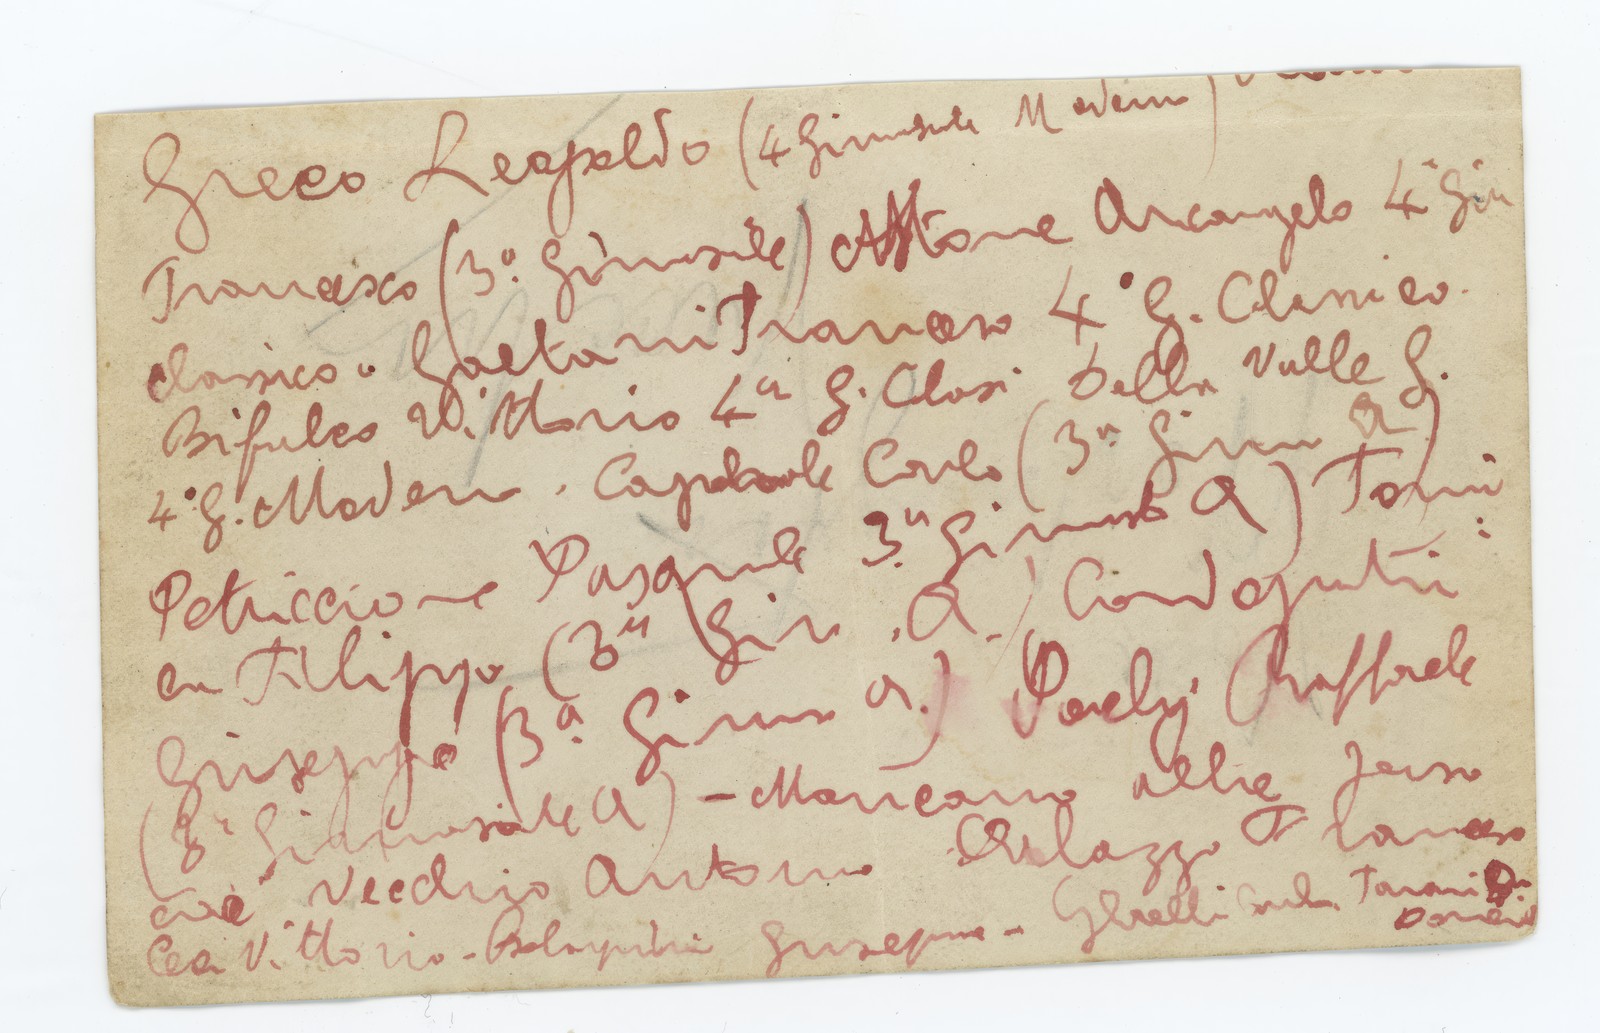 Greco Leopoldo (4 Ginnasiale Moderno)
Francesco (3a Ginnasiale) Attone Arcangelo 4a Gin
classico - Gaetani Francesco 4° G. Classico.
Bifulco Vittorio 4a G. Clasi Della Valle G.
4° G. Moderno. Capobianco Carlo (3a Ginn A)
Petriccione Pasquale 3a Ginnasiale A)
en Filippo (3a Gin. A.)
Giuseppe (3a Ginn A.) Raffaele
(3a Ginnasiale A) - Mancano altre
cioè Vecchio Antonio Palazzo Francesco
Cea Vittorio - Giuseppe - Ghirelli